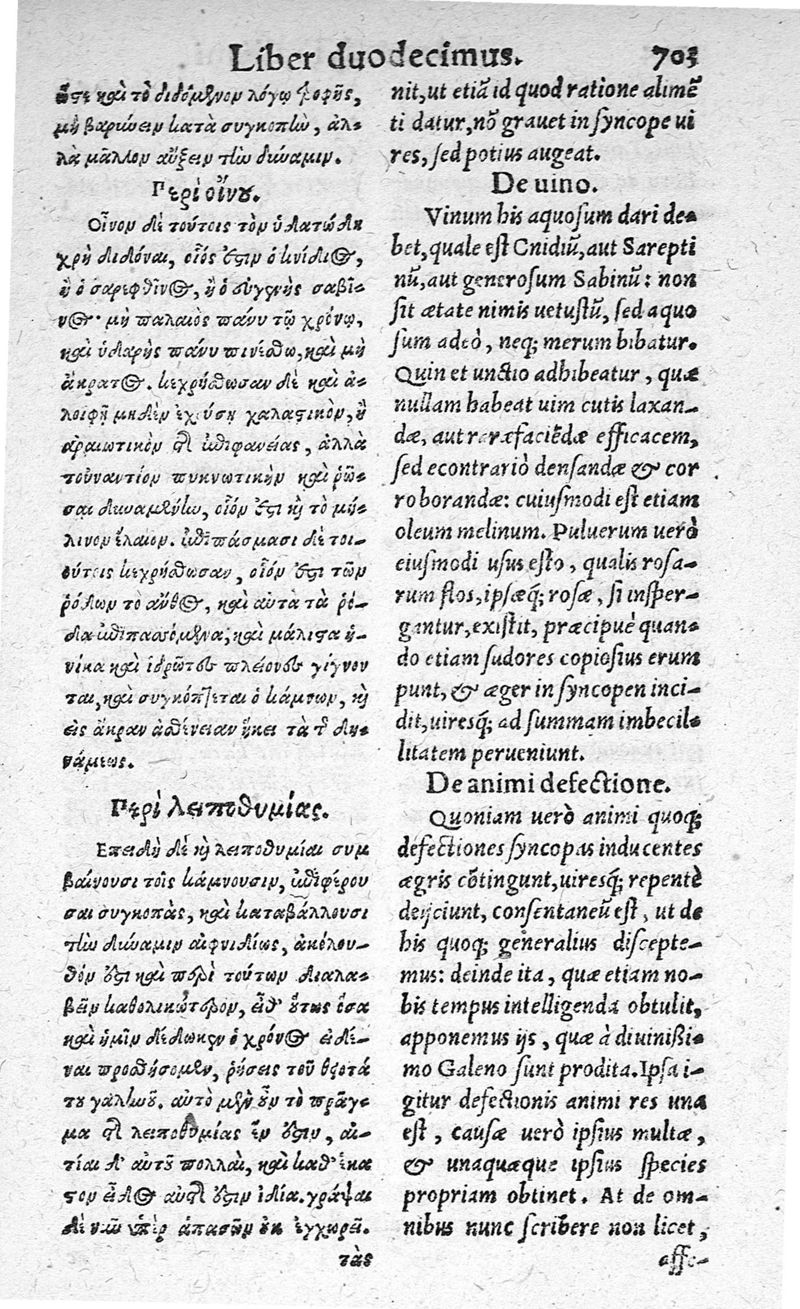 Liber duodecimus. 703
ὥστε καὶ τὸ διδόμενον λόγῳ τροφῆς,
μὴ βαρύνειν κατὰ συγκοπὴν, ἀλ-
λὰ μᾶλλον αὔξειν τὴν δύναμιν.
Περὶ οἴνου.
Οἶνον δὲ τούτοις τὸν ὑδατώδη
χρὴ διδόναι, οἷός ἐστιν ὁ κνίδιος,
ἢ ὁ σαρεφθῖνος, ἢ ὁ εὐγενὴς σαβῖ-
νος· μὴ παλαιὸς πάνυ τῷ χρόνῳ,
καὶ ὑδαρὴς πάνυ πινέσθω, καὶ μὴ
ἄκρατος. κεχρήσθωσαν δὲ καὶ ἀ-
λοιφῇ μηδὲν ἐχούσῃ χαλαστικὸν, ἢ
ἀραιωτικὸν τῆς ἐπιφανείας, ἀλλὰ
τοὐναντίον πυκνωτικὴν καὶ ῥῶ-
σαι δυναμένην, οἷόν ἐστι καὶ τὸ μή-
λινον ἔλαιον. ἐπιπάσμασι δὲ τοι-
ούτοις κεχρήσθωσαν, οἷόν ἐστι τῶν
ῥόδων τὸ ἄνθος, καὶ αὐτὰ τὰ ῥό-
δα ἐπιπασσόμενα, καὶ μάλιστα ἡ-
νίκα καὶ ἱδρῶτες πλείονες γίγνον
ται, καὶ συγκόπτεται ὁ κάμνων, καὶ
εἰς ἄκραν ἀσθένειαν ἥκει τὰ τῆς δυ-
νάμεως.
Περὶ λειποθυμίας.
Ἐπειδὴ δὲ καὶ λειποθυμίαι συμ
βαίνουσι τοῖς κάμνουσιν, ἐπιφέρου
σαι συγκοπὰς, καὶ καταβάλλουσι
τὴν δύναμιν αἰφνιδίως, ἀκόλου-
θόν ἐστι καὶ περὶ τούτων διαλα-
βεῖν καθολικώτερον, εἶθ' οὕτως ὅσα
καὶ ἡμῖν δέδωκεν ὁ χρόνος εἰδέ-
ναι προσθήσομεν, ῥήσεις τοῦ θειοτά
του γαληνοῦ. αὐτὸ μὲν οὖν τὸ πρᾶγ-
μα τῆς λειποθυμίας ἓν ἐστιν, αἰ-
τίαι δ' αὐτοῦ πολλαὶ, καὶ καθ' ἕκα
στον εἶδος αὐτῆς ἐστιν ἰδία. γράψαι
δὲ νῦν ὑπὲρ ἁπασῶν οὐκ ἐγχωρεῖ.
τὰς
nit, ut etiã id quod ratione alimẽ
ti datur, nõ grauet in syncope ui
res, sed potius augeat.
De uino.
Vinum his aquosum dari de-
bet, quale est Cnidiũ, aut Sarepti
nũ, aut generosum Sabinũ: non
sit ætate nimis uetustũ, sed aquo
sum adeò, neq; merum bibatur.
Quin et unctio adhibeatur, quæ
nullam habeat uim cutis laxan-
dæ, aut rarefaciẽdæ efficacem,
sed econtrariò densandæ & cor
roborandæ: cuiusmodi est etiam
oleum melinum. Puluerum uerò
eiusmodi usus esto, qualis rosa-
rum flos, ipsæq; rosæ, si insper-
gantur, existit, præcipuè quan-
do etiam sudores copiosius erum
punt, & æger in syncopen inci-
dit, uiresq; ad summam imbecil-
litatem perueniunt.
De animi defectione.
Quoniam uerò animi quoq;
defectiones syncopas inducentes
ægris cõtingunt, uiresq; repentè
deijciunt, consentaneũ est, ut de
his quoq; generalius discepte-
mus: deinde ita, quæ etiam no-
bis tempus intelligenda obtulit,
apponemus ijs, quæ à diuinissi-
mo Galeno sunt prodita. Ipsa i-
gitur defectionis animi res una
est, causæ uerò ipsius multæ,
& unaquæque ipsius species
propriam obtinet. At de om-
nibus nunc scribere non licet,
affe-